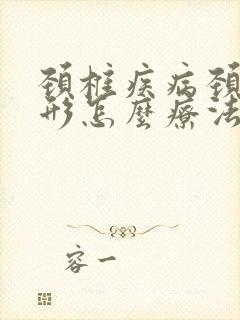 頸椎疾病頸
形怎麼療法
容一